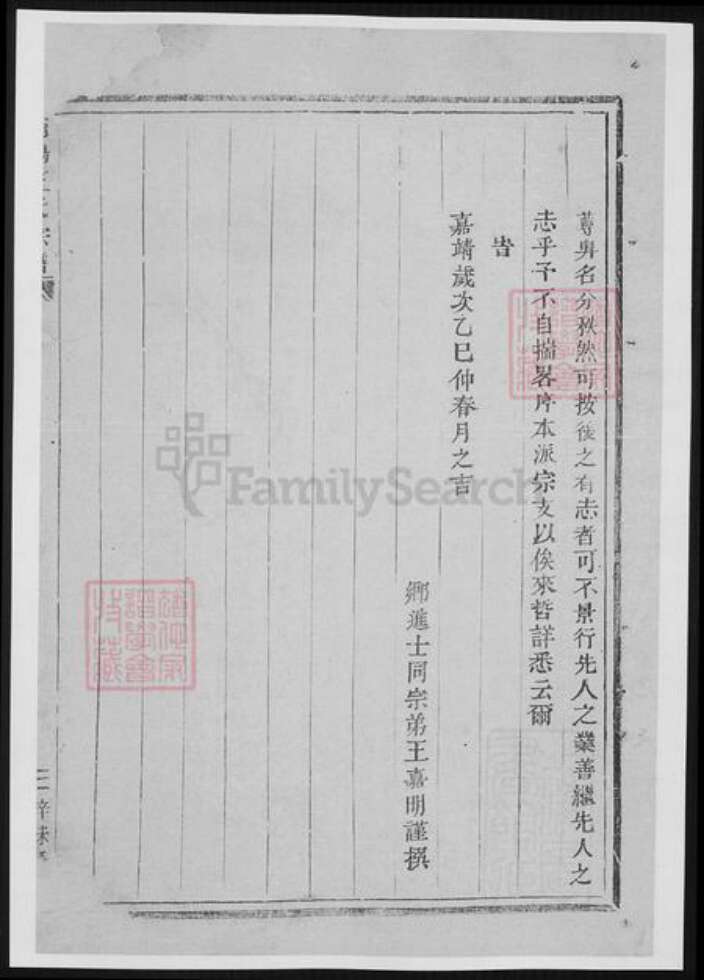 尊卑名分秩然可按後之有志者可不景行先人之業善繼先人之
志乎予不自揣畧序本派宗支以俟來哲詳悉云爾
旹
嘉靖歲次乙巳仲春月之吉
鄉進士同宗弟王嘉明謹撰
FamilySearch